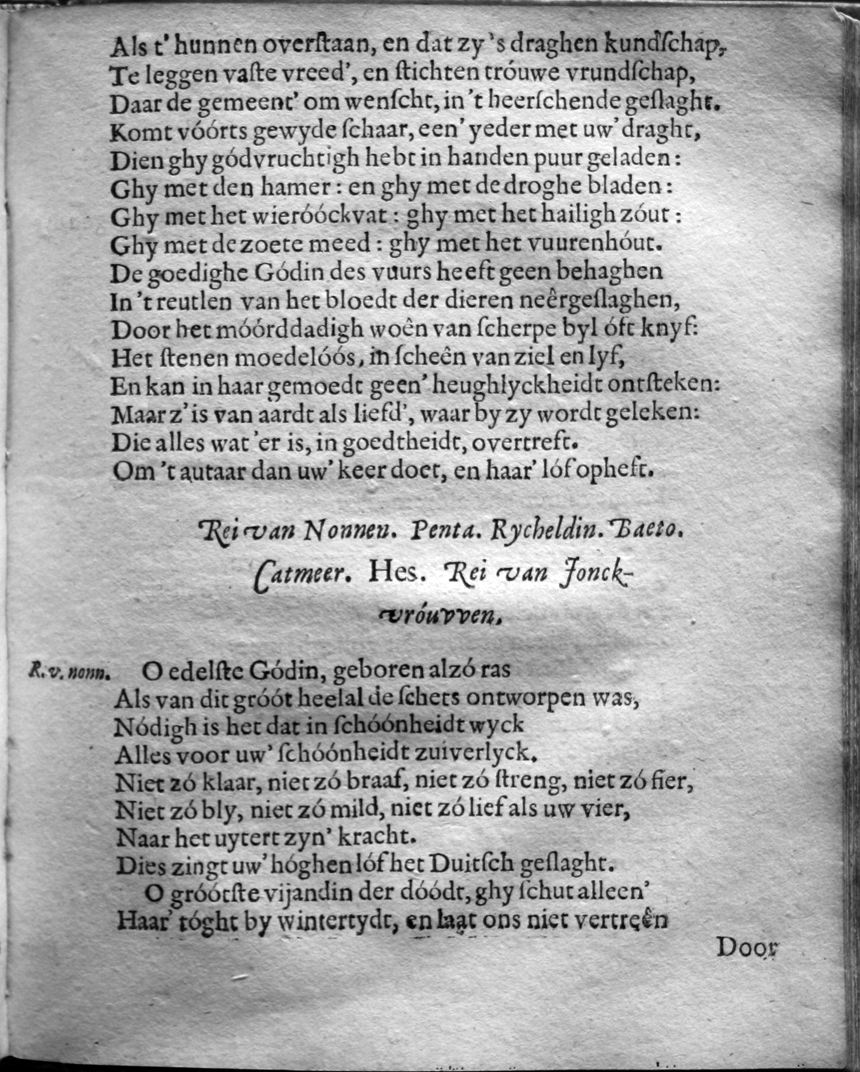 Als t' hunnen overſtaan, en dat zy 's draghen kundſchap,
Te leggen vaſte vreed', en ſtichten tróuwe vrundſchap,
Daar de gemeent' om wenſcht, in 't heerſchende geſlaght.
Komt vóórts gewyde ſchaar, een' yeder met uw' draght,
Dien ghy gódvruchtigh hebt in handen puur geladen:
Ghy met den hamer: en ghy met de droghe bladen:
Ghy met het wieróóckvat: ghy met het hailigh zóut:
Ghy met de zoete meed: ghy met het vuurenhóut.
De goedighe Gódin des vuurs heeft geen behaghen
In 't reutlen van het bloedt der dieren neêrgeſlaghen,
Door het móórddadigh woên van ſcherpe byl óft knyf:
Het ſtenen moedelóós, in ſcheên van ziel en lyf,
En kan in haar gemoedt geen' heughlyckheidt ontſteken:
Maar z' is van aardt als liefd', waar by zy wordt geleken:
Die alles wat 'er is, in goedtheidt, overtreft.
Om 't autaar dan uw' keer doet, en haar' lóf opheft.
Rei van Nonnen. Penta. Rycheldin. Baeto.
Catmeer. Hes. Rei van Jonck-
vróuvven.
R. v. nonn. O edelſte Gódin, geboren alzó ras
Als van dit gróót heelal de ſchets ontworpen was,
Nódigh is het dat in ſchóónheidt wyck
Alles voor uw' ſchóónheidt zuiverlyck.
Niet zó klaar, niet zó braaf, niet zó ſtreng, niet zó fier,
Niet zó bly, niet zó mild, niet zó lief als uw vier,
Naar het uytert zyn' kracht.
Dies zingt uw' hóghen lóf het Duitſch geſlaght.
O gróótſte vijandin der dóódt, ghy ſchut alleen'
Haar' tóght by wintertydt, en laat ons niet vertreên
Door